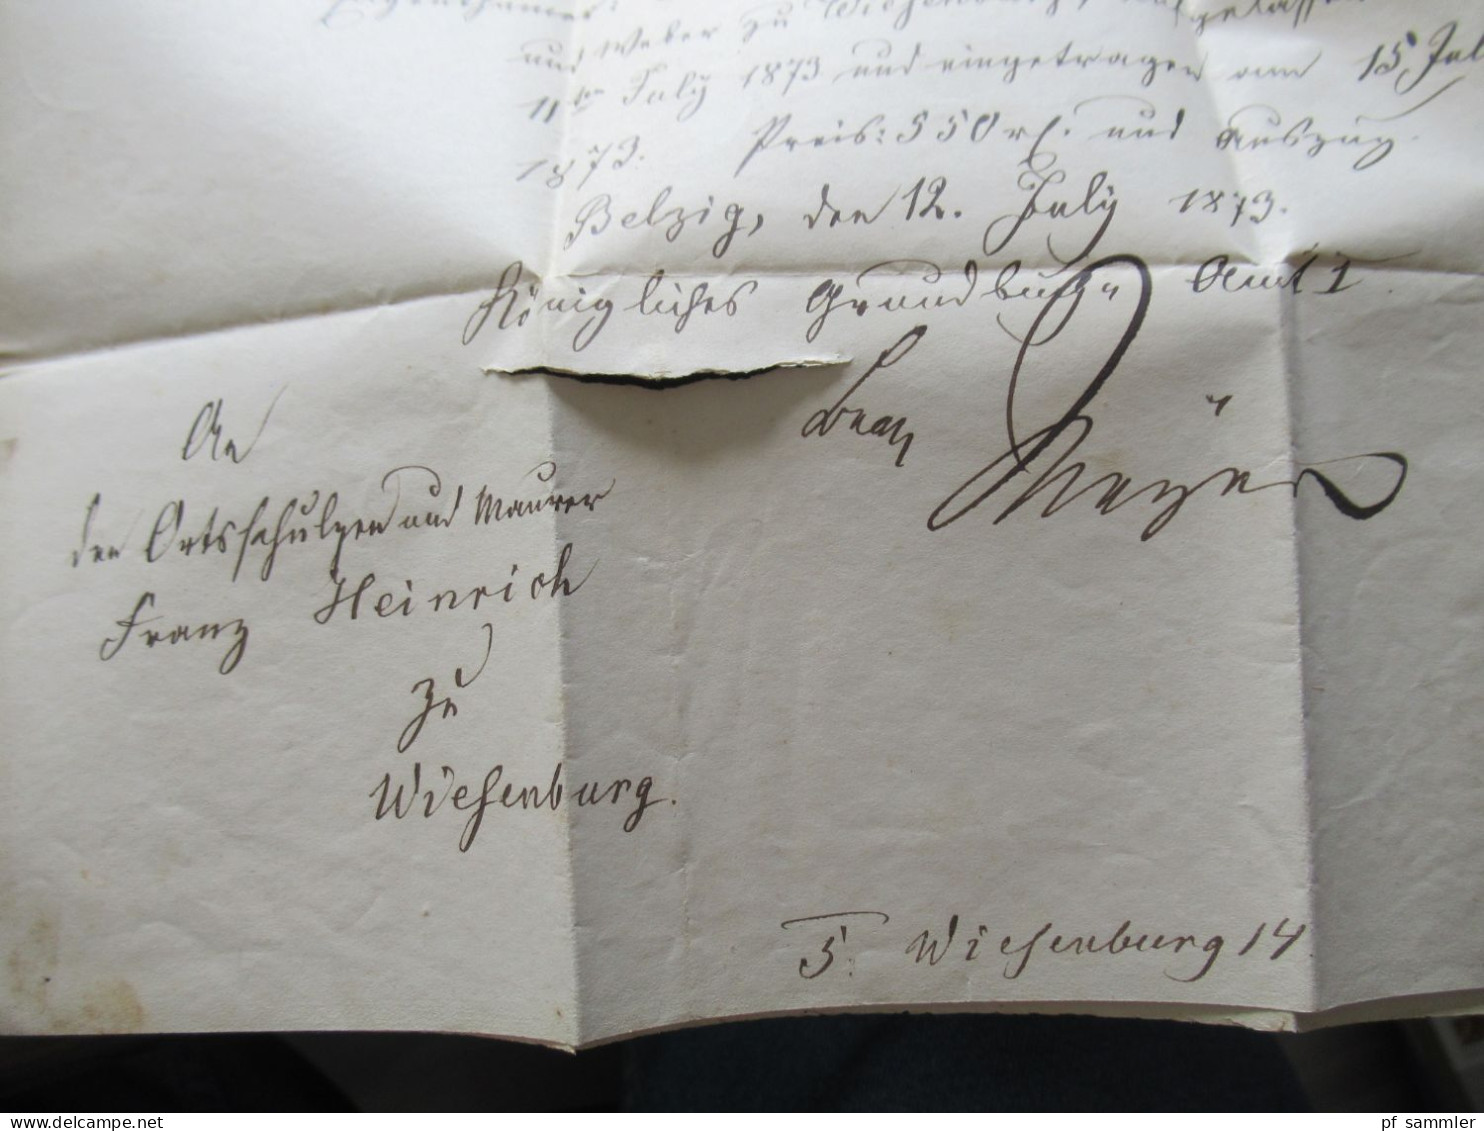 Eigenthümer
und Weber zu Wiesenburg, aufgelassen
11ten July 1873 und eingetragen am 15 Jul
1873. Preis: 550 rl. und Auszug.
Belzig, den 12. July 1873.
Königliches Grundbuch Amt I.
Meyer
An
den Ortsschulzen und Maurer
Franz Heinrich
zu
Wiesenburg.
5. Wiesenburg 14
www.delcampe.net
pf_sammler